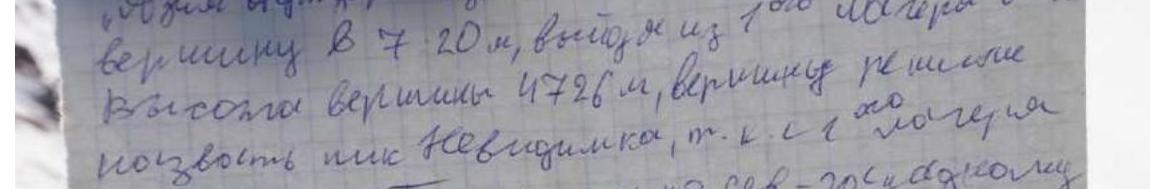 вершину в 7 20 м, выйдя из 1ого лагеря
высота вершины 4726 м, вершину решили
назвать пик Невидимка, т. к. с 1ого лагеря